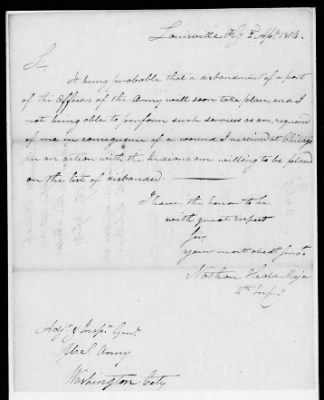 Louisville Ky 3d Apl. 1814.
Sir,
It being probable that a disbandment of a part
of the Officers of the Army will soon take place, and I
not being able to perform such services as are required
of me in consequence of a wound I received at Chicago
in an action with the Indians am willing to be placed
on the list of disbanded.
I have the honor to be
with great respect
Sir
your most obedt. Servt.
Nathan Heald Major
4th Infy.
Adjt. & Inspr. Genl.
U S Army
Washington City